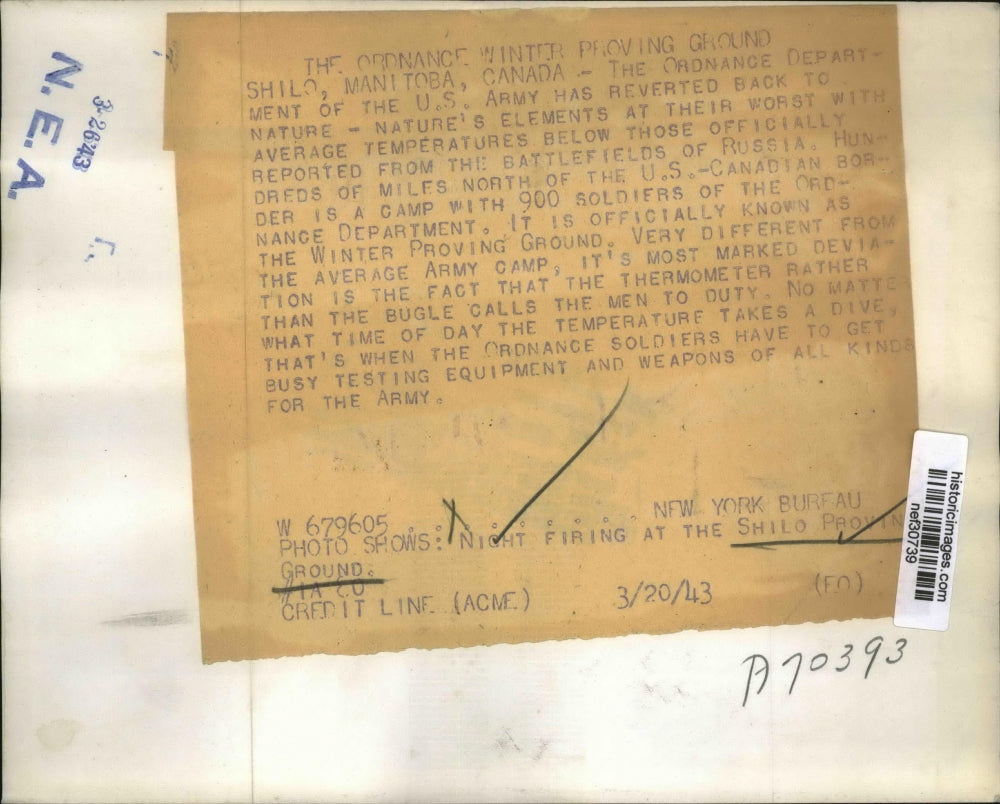 THE ORDNANCE WINTER PROVING GROUND
SHILO, MANITOBA, CANADA - THE ORDNANCE DEPART-
MENT OF THE U.S. ARMY HAS REVERTED BACK TO
NATURE - NATURE'S ELEMENTS AT THEIR WORST WITH
AVERAGE TEMPERATURES BELOW THOSE OFFICIALLY
REPORTED FROM THE BATTLEFIELDS OF RUSSIA. HUN-
DREDS OF MILES NORTH OF THE U.S.-CANADIAN BOR-
DER IS A CAMP WITH 900 SOLDIERS OF THE ORD-
NANCE DEPARTMENT. IT IS OFFICIALLY KNOWN AS
THE WINTER PROVING GROUND. VERY DIFFERENT FROM
THE AVERAGE ARMY CAMP, IT'S MOST MARKED DEVIA-
TION IS THE FACT THAT THE THERMOMETER RATHER
THAN THE BUGLE CALLS THE MEN TO DUTY. NO MATTE
WHAT TIME OF DAY THE TEMPERATURE TAKES A DIVE,
THAT'S WHEN THE ORDNANCE SOLDIERS HAVE TO GET
BUSY TESTING EQUIPMENT AND WEAPONS OF ALL KINDS
FOR THE ARMY.
W 679605 . . . . . . . NEW YORK BUREAU
PHOTO SHOWS: NIGHT FIRING AT THE SHILO PROVIN
GROUND.
CREDIT LINE (ACME) 3/20/43
N.E.A.
3-26-43
historicimages.com
nef30739
A70393